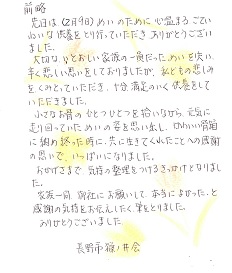 前略
先日は(2月9日)めいのために心温まるごてい
ねいな供養をとり行っていただきありがとうござい
ました。
大切な、いとおしい家族の一員だっためいを失い、
辛く悲しい思いをしておりましたが、
をくみとっていただき、十分満足のいく供養をして
いただきました。
小さなお骨の一つとひとつを拾いながら、元気に
走り回っていためいの姿を思い出し、かわいい骨箱
に納め終った時に、共に生きてくれたことへの感謝
の思いで、いっぱいになりました。
おかげさまで、気持の整理をつけるきっかけとなりま
した。
家族一同、御社にお願いして、本当によかったと
感謝の気持をお伝えしたく、筆をとりました。
ありがとうございました。
長野市篠ノ井会